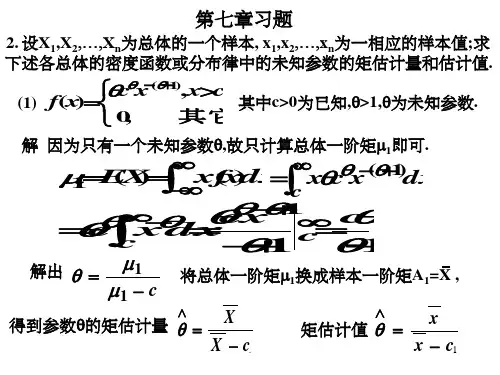 第七章习题
2. 设X₁,X₂,…,Xₙ为总体的一个样本, x₁,x₂,…,xₙ为一相应的样本值;求
下述各总体的密度函数或分布律中的未知参数的矩估计量和估计值.
(1) f(x)={θc^θ x^-(θ+1), x>c 0, 其它 其中c>0为已知,θ>1,θ为未知参数.
解 因为只有一个未知参数θ,故只计算总体一阶矩μ₁即可.
μ₁=E(X)=∫_-∞^∞ xf(x)d =∫_c^∞ xθc^θ x^-(θ+1) d
=θc^θ∫_c^∞ x^-θ dx=
解出 θ = μ₁/(μ₁ − c) 将总体一阶矩μ₁换成样本一阶矩A₁=X̄ ,
得到参数θ的矩估计量 θ̂ = X̄/(X̄ − c) 矩估计值 θ̂ = x̄/(x̄ − c₁)